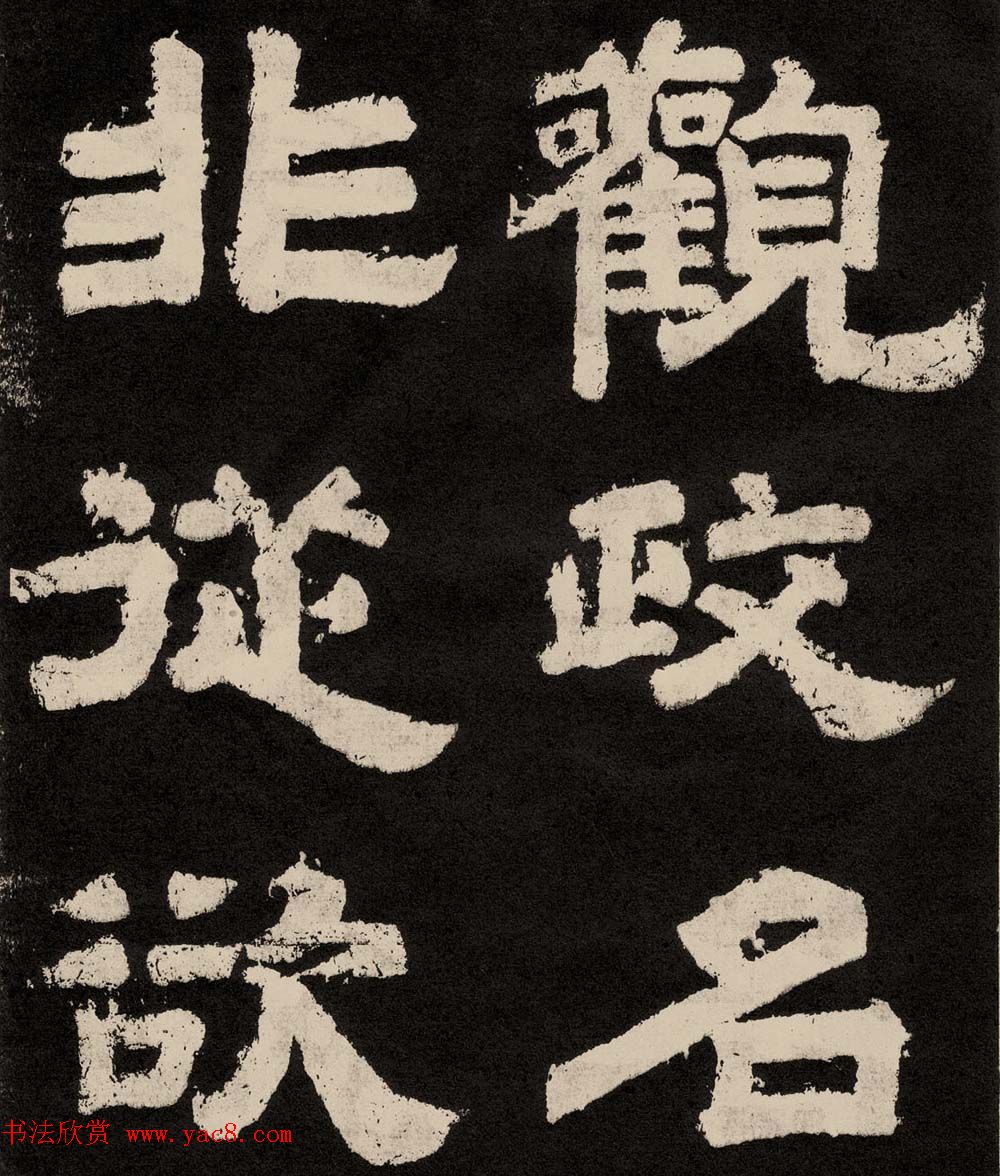 觀政名
非從欲
书法欣赏 www.yac8.com